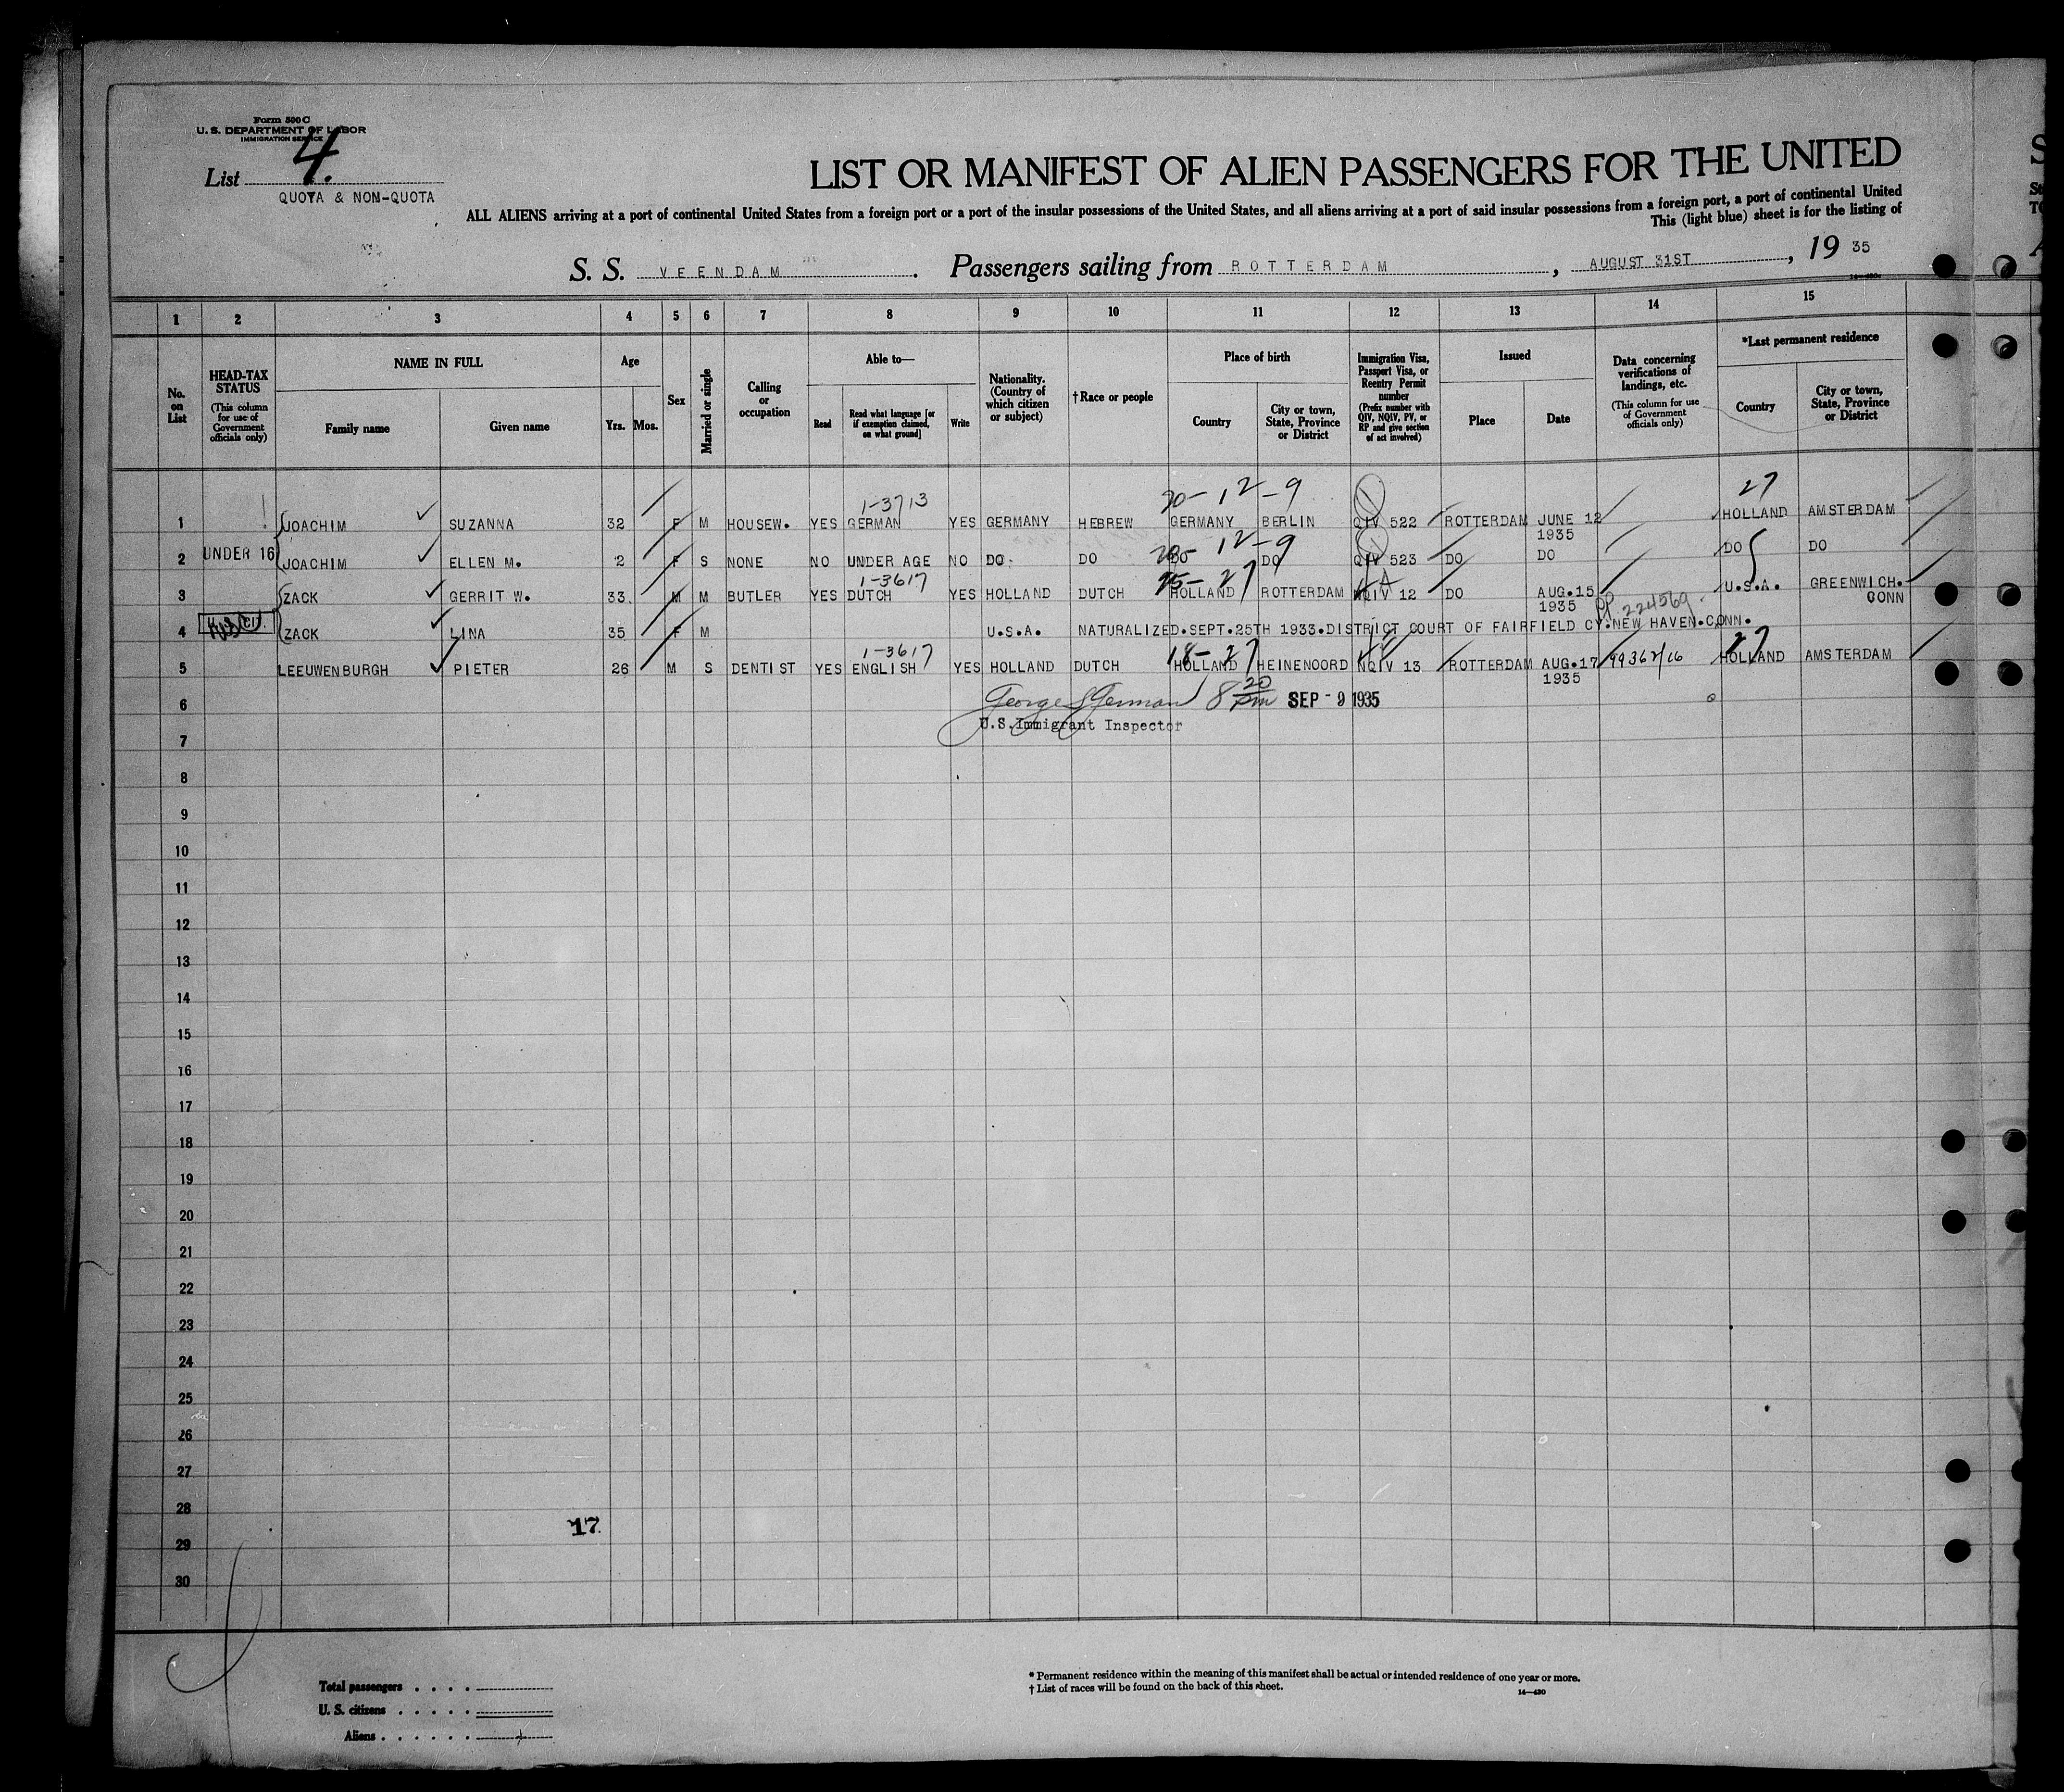 Form 500 C
U. S. DEPARTMENT OF LABOR
IMMIGRATION SERVICE
List 4.
QUOTA & NON-QUOTA
LIST OR MANIFEST OF ALIEN PASSENGERS FOR THE UNITED
ALL ALIENS arriving at a port of continental United States from a foreign port or a port of the insular possessions of the United States, and all aliens arriving at a port of said insular possessions from a foreign port, a port of continental United
This (light blue) sheet is for the listing of
S. S. VEENDAM . Passengers sailing from ROTTERDAM , AUGUST 31ST , 19 35
1 2 3 4 5 6 7 8 9 10 11 12 13 14 15
No. on List
HEAD-TAX STATUS
(This column for use of Government officials only)
NAME IN FULL
Family name Given name
Age
Yrs. Mos.
Sex
Married or single
Calling or occupation
Able to—
Read Read what language [or if exemption claimed, on what ground] Write
Nationality. (Country of which citizen or subject)
†Race or people
Place of birth
Country City or town, State, Province or District
Immigration Visa, Passport Visa, or Reentry Permit number
(Prefix number with QIV, NQIV, PV, or RP and give section of act involved)
Issued
Place Date
Data concerning verifications of landings, etc.
(This column for use of Government officials only)
*Last permanent residence
Country City or town, State, Province or District
1-3713 20-12-9 27
1 JOACHIM SUZANNA 32 F M HOUSEW. YES GERMAN YES GERMANY HEBREW GERMANY BERLIN QIV 522 ROTTERDAM JUNE 12 1935 HOLLAND AMSTERDAM
12-9
2 UNDER 16 JOACHIM ELLEN M. 2 F S NONE NO UNDER AGE NO DO. DO DO DO QIV 523 DO DO DO DO
1-3617 27
3 ZACK GERRIT W. 33 M M BUTLER YES DUTCH YES HOLLAND DUTCH HOLLAND ROTTERDAM NQIV 12 DO AUG.15 1935 U.S.A. GREENWICH. CONN
PP. 224569
4 ZACK LINA 35 F M U.S.A. NATURALIZED.SEPT.25TH 1933.DISTRICT COURT OF FAIRFIELD CY.NEW HAVEN.CONN.
1-3617 18-27 27
5 LEEUWENBURGH PIETER 26 M S DENTIST YES ENGLISH YES HOLLAND DUTCH HOLLAND HEINENOORD NQIV 13 ROTTERDAM AUG.17 1935 HOLLAND AMSTERDAM
6 George S German 8 20 pm SEP - 9 1935
U.S. Immigrant Inspector
7
8
9
10
11
12
13
14
15
16
17
18
19
20
21
22
23
24
25
26
27
28
17.
29
30
Total passengers . . . .
U. S. citizens . . . . .
Aliens . . . . . .
* Permanent residence within the meaning of this manifest shall be actual or intended residence of one year or more.
† List of races will be found on the back of this sheet.
14—430